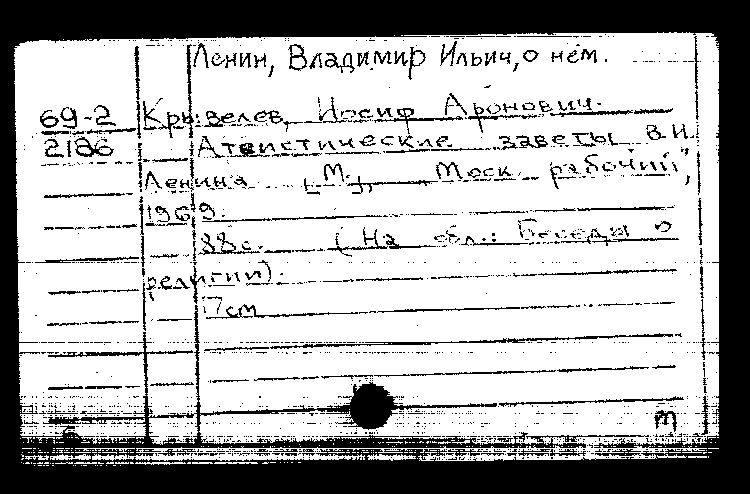 Ленин, Владимир Ильич, о нём.
69-2 Крывелев, Иосиф Аронович.
2186 Атеистические заветы В.И.
Ленина [М.], "Моск. рабочий",
1969.
88с. (На обл.: Беседы о
религии).
17см
m
6